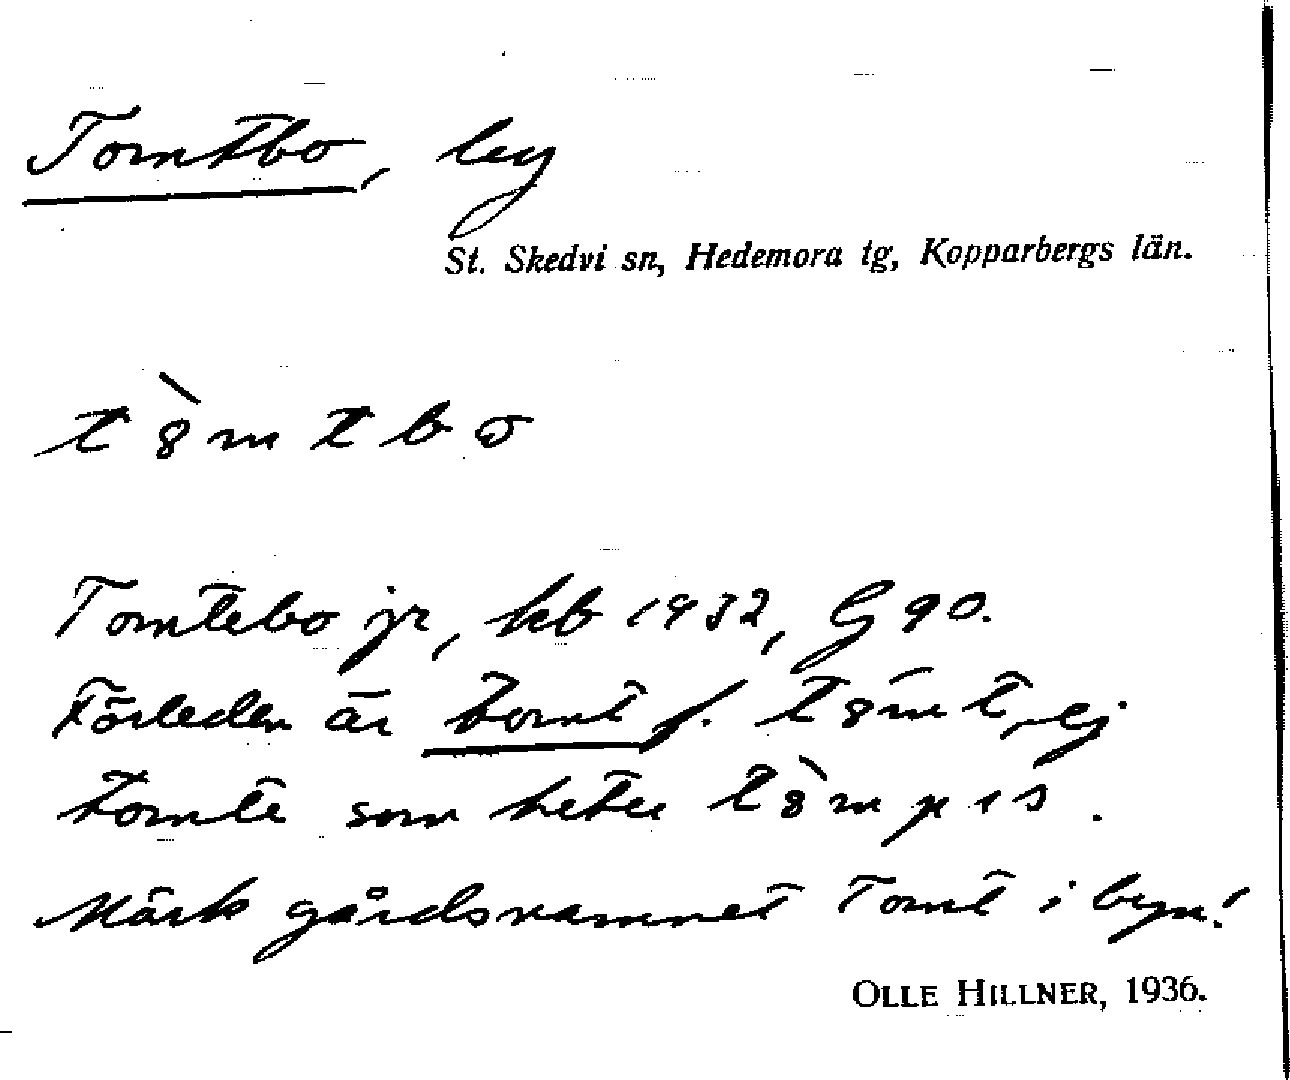 Tomtbo, by
St. Skedvi sn, Hedemora tg, Kopparbergs län.
t8̀mtbo
Tomtebo jr, kb 1932, G 90.
Förleden är tomt f. t8mt, ej
tomte som heter t8̀mpıs.
Märk gårdsnamnet Tomt i byn!
OLLE HILLNER, 1936.